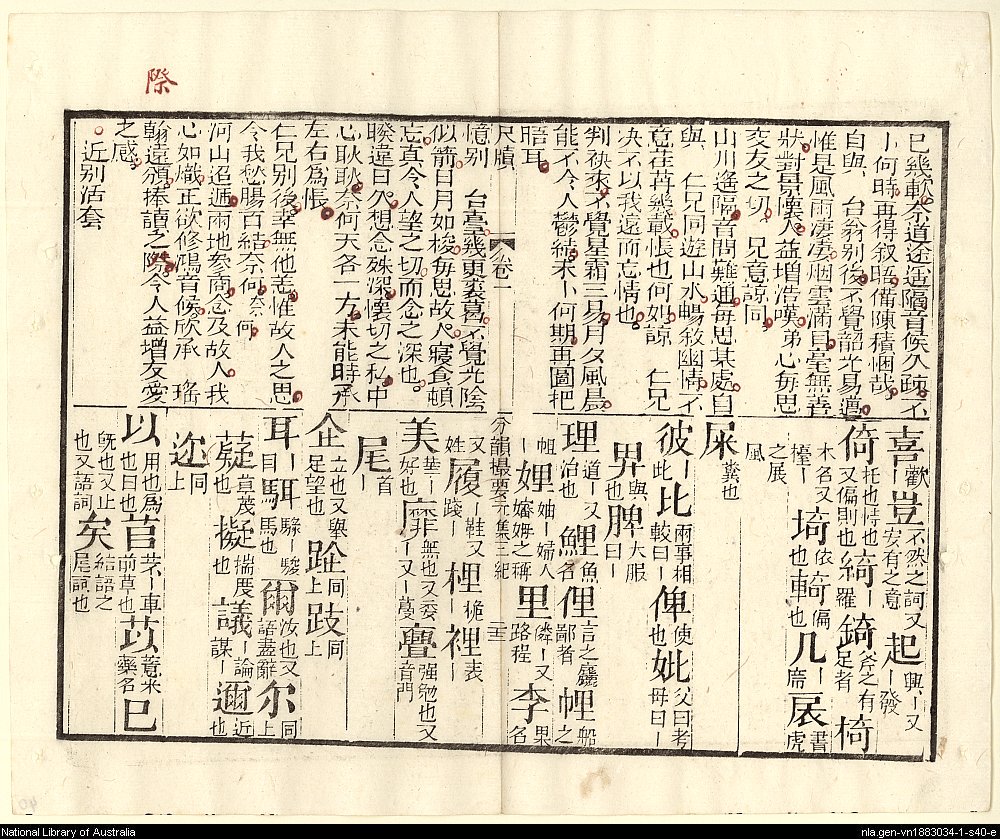 際
已幾軟奈道途遥隔音候久疎不
卜何時再得叙晤備陳積悃哉
自與 台翁别後不覺韶光易邁
惟是風雨凄凄烟雲滿目毫無善
狀對景懷人益增浩嘆弟心每思
交友之切 兄意諒同
山川遙隔音問難通毎思某處自
與 仁兄同遊山水暢敘幽情不
意荏苒幾載悵也何如諒 仁兄
决不以我遠而忘情也
判袂來不覺星霜三易月夕風晨
能不令人鬱結未卜何期再圖把
晤耳
尺牘 卷一
憶别 台臺幾更裘葛不覺光陰
似箭日月如梭毎思故人寢食頓
忘真令人望之切而念之深也
暌違日久想念殊深懷切之私中
心耿耿奈何天各一方未能時承
左右為悵
仁兄别後幸無他恙惟故人之思
令我愁腸百結奈何奈何
河山迢遞兩地叅商念及故人我
心如熾正欲修鴻音候欣承 瑤
翰遠頒捧讀之際令人益增友愛
之感
近别活套
喜歡丨豈不然之詞又安有之意起興丨又丨發
倚托也恃也又偏則也綺丨羅錡斧之有足者椅
木名又檯丨埼依也輢偏也几席丨扆書虎
之展風
屎糞也
彼丨此比兩事相較曰丨俾使也妣父曰考母曰丨
畀與也髀大服曰丨
理道丨又治也鯉魚名俚言之麤鄙者浬船之
帆丨娌妯丨婦人嫲姆之稱里鄰丨又路程李果名
分韻撮要元集三紀 二十三
又姓履鞋又踐丨梩桅丨裡表丨
美華丨好也靡無也又委丨又丨蔓亹強勉也又音門
尾首丨
企立也又舉足望也跐同上跂同上
耳丨目駬騄丨駿馬也爾汝也又語盡辭尔同上
薿草茂也擬揣度也議丨論謀丨邇近也
迩同上
以用也為也曰也苢芣丨車前草也苡薏米藥名已
旣也又止也又語詞矣結語之尾詞也
National Library of Australia
nla.gen-vn1883034-1-s40-e